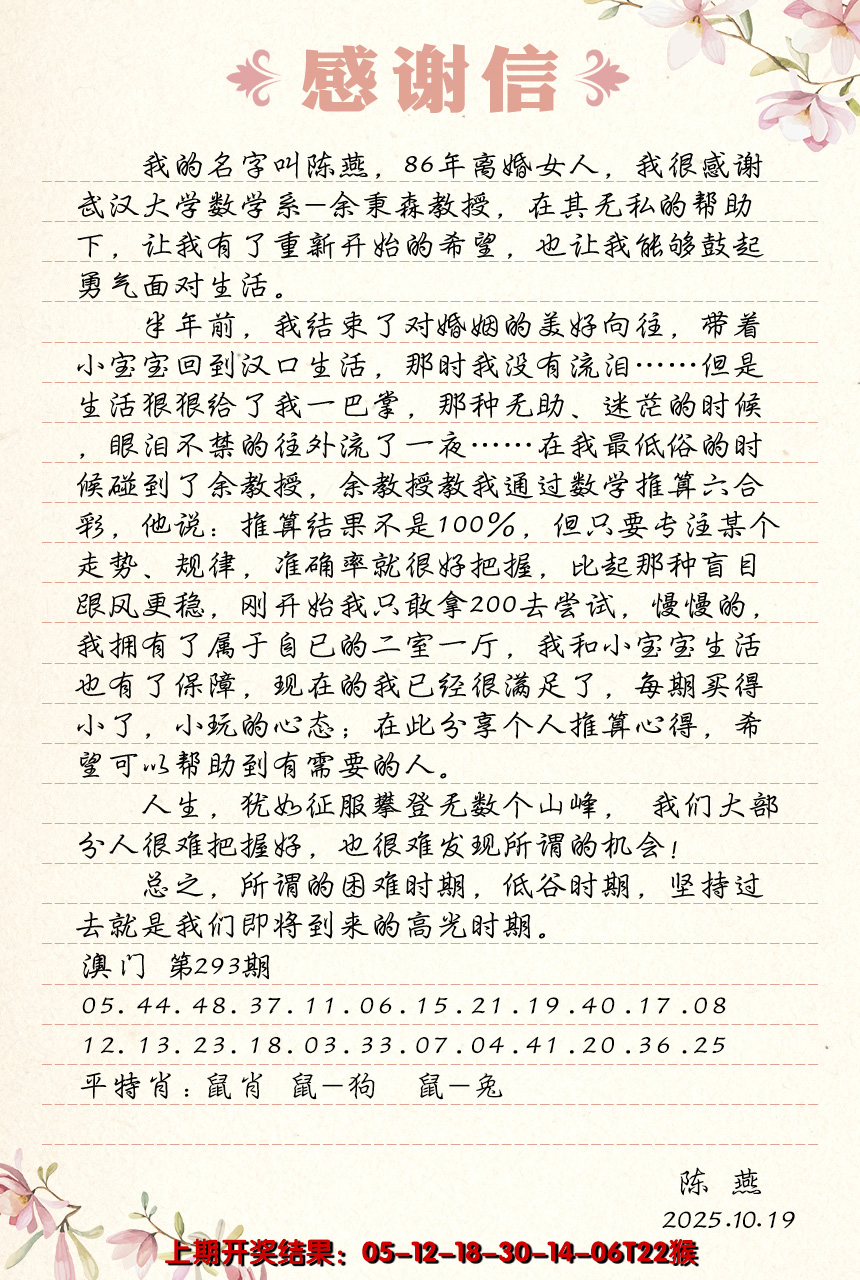 感谢信
我的名字叫陈燕，86年离婚女人，我很感谢
武汉大学数学系—余秉森教授，在其无私的帮助
下，让我有了重新开始的希望，也让我能够鼓起
勇气面对生活。
半年前，我结束了对婚姻的美好向往，带着
小宝宝回到汉口生活，那时我没有流泪……但是
生活狠狠给了我一巴掌，那种无助、迷茫的时候
，眼泪不禁的往外流了一夜……在我最低俗的时
候碰到了余教授，余教授教我通过数学推算六合
彩，他说：推算结果不是100%，但只要专注某个
走势、规律，准确率就很好把握，比起那种盲目
跟风更稳，刚开始我只敢拿200去尝试，慢慢的，
我拥有了属于自已的二室一厅，我和小宝宝生活
也有了保障，现在的我已经很满足了，每期买得
小了，小玩的心态；在此分享个人推算心得，希
望可以帮助到有需要的人。
人生，犹如征服攀登无数个山峰， 我们大部
分人很难把握好，也很难发现所谓的机会！
总之，所谓的困难时期，低谷时期，坚持过
去就是我们即将到来的高光时期。
澳门 第293期
05.44.48.37.11.06.15.21.19.40.17.08
12.13.23.18.03.33.07.04.41.20.36.25
平特肖：鼠肖 鼠—狗 鼠—兔
陈 燕
2025.10.19
上期开奖结果：05-12-18-30-14-06T22猴